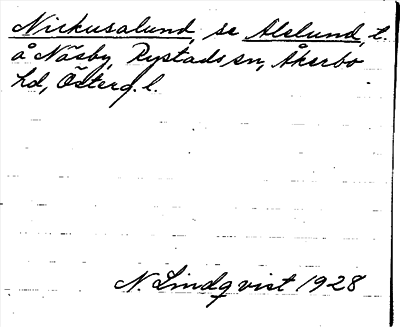 Nickusalund, se Alslund, t.
å Näsby, Rystads sn, Åkerbo
hd, Österg. l.
N. Lindqvist 1928